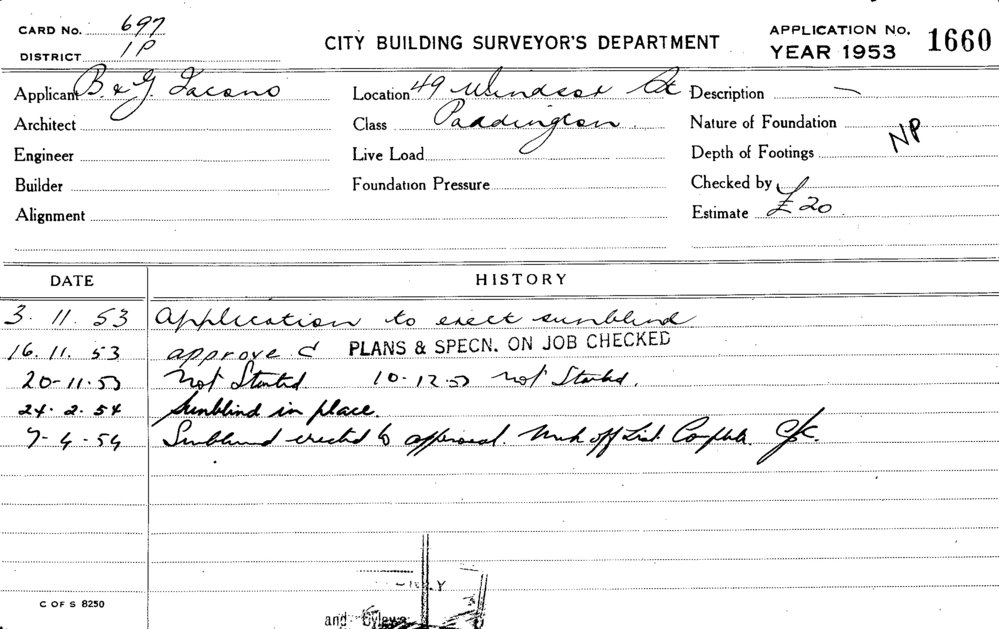 CARD No. 697
DISTRICT 1P
CITY BUILDING SURVEYOR'S DEPARTMENT
APPLICATION No. 1660
YEAR 1953
Applicant B. & G. Iacono
Location 49 Windsor St
Description —
Architect
Class Paddington
Nature of Foundation
NP
Engineer
Live Load
Depth of Footings
Builder
Foundation Pressure
Checked by
Alignment
Estimate £20
DATE HISTORY
3. 11. 53 Application to erect sunblind
16. 11. 53 approved PLANS & SPECN. ON JOB CHECKED
20-11-53 Not Started 10-12-53 not Started.
24. 2. 54 Sunblind in place.
7-4-54 Sunblind erected to approval. Mark off List Complete.
C OF S 8250
and Bylaws